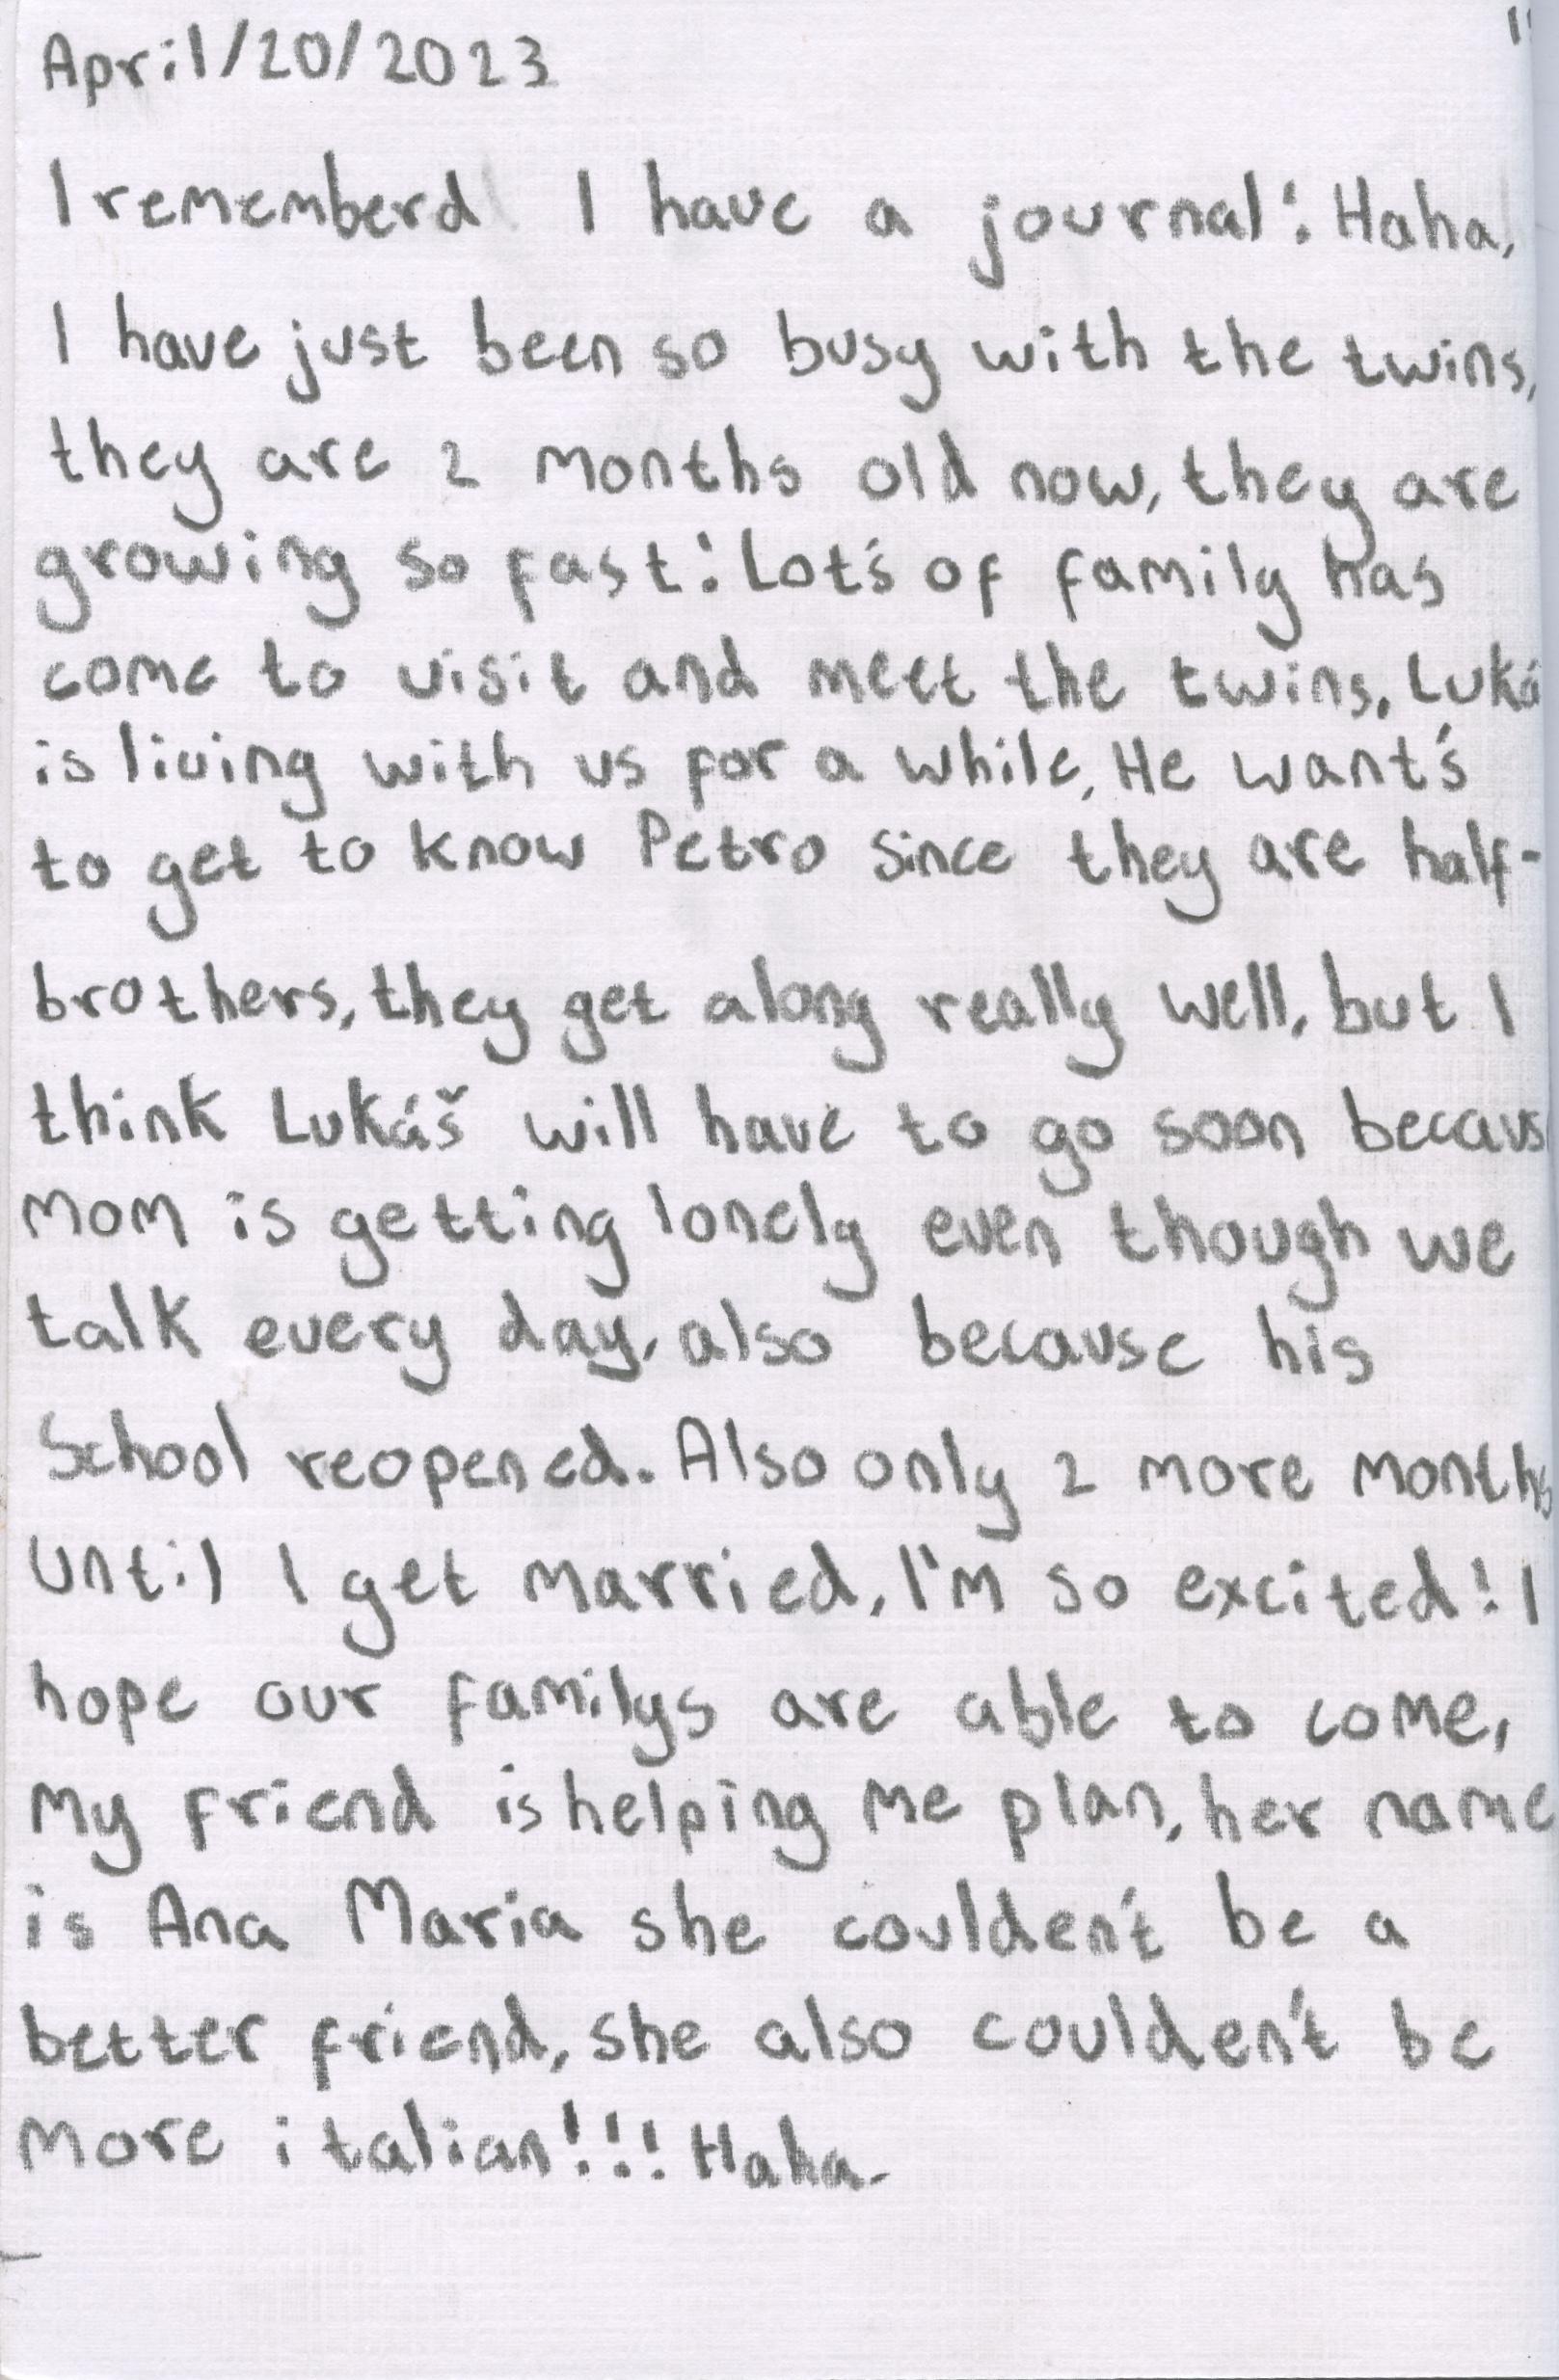 11
April/20/2023
I rememberd I have a journal! Haha,
I have just been so busy with the twins,
they are 2 months old now, they are
growing so fast! Lot's of family has
come to visit and meet the twins. Luká
is living with us for a while, He want's
to get to know Petro since they are half-
brothers, they get along really well, but I
think Lukáš will have to go soon becaus
Mom is getting lonely even though we
talk every day, also because his
School reopened. Also only 2 more months
until I get married, I'm so excited! I
hope our familys are able to come,
My friend is helping me plan, her name
is Ana Maria she coulden't be a
better friend, she also coulden't be
more italian!!! Haha-